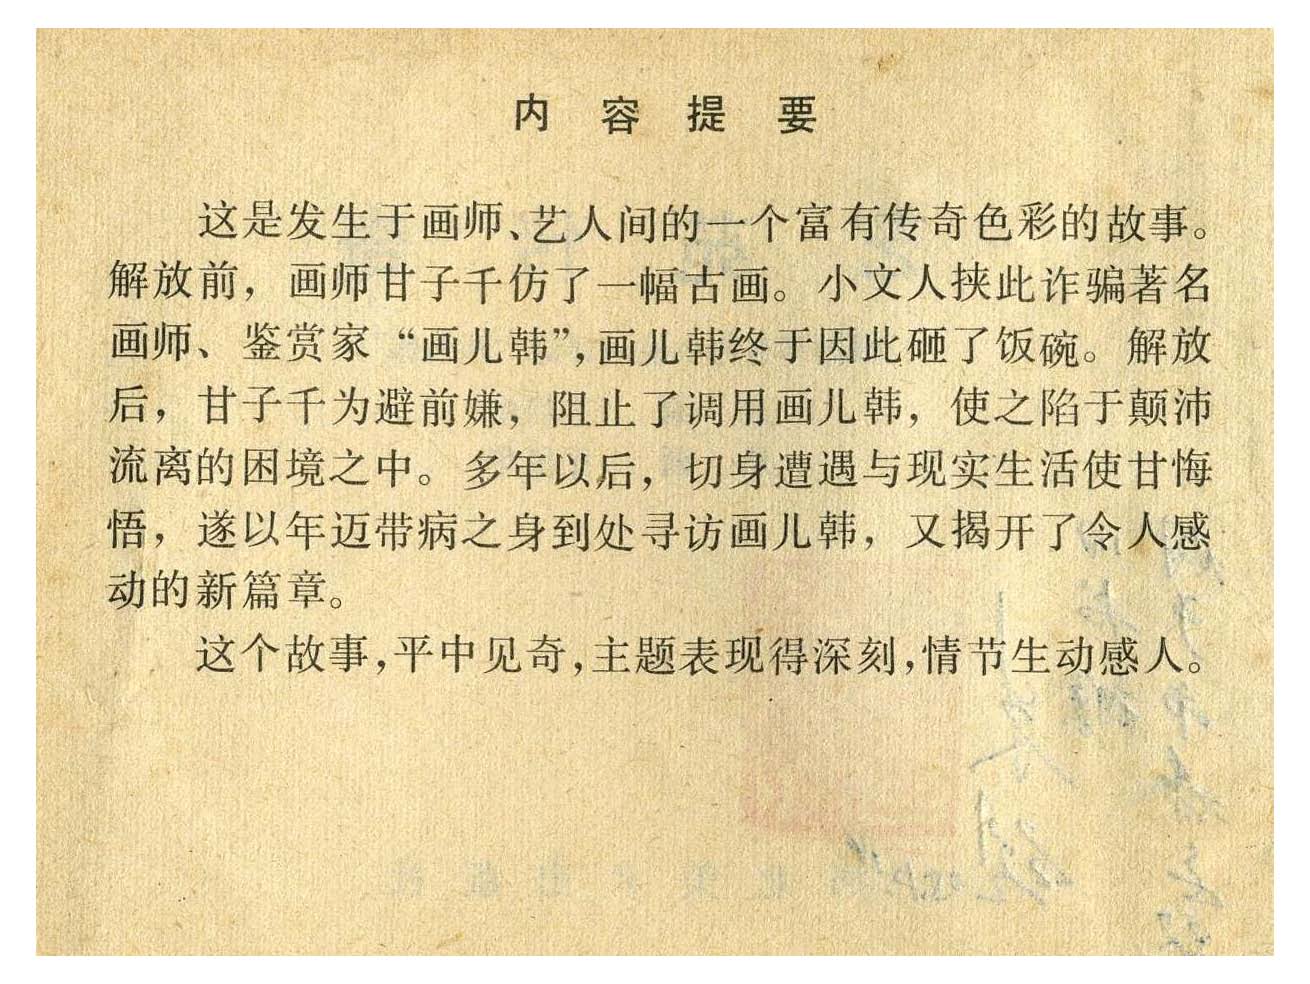 内容提要
这是发生于画师、艺人间的一个富有传奇色彩的故事。
解放前，画师甘子千仿了一幅古画。小文人挟此诈骗著名
画师、鉴赏家“画儿韩”，画儿韩终于因此砸了饭碗。解放
后，甘子千为避前嫌，阻止了调用画儿韩，使之陷于颠沛
流离的困境之中。多年以后，切身遭遇与现实生活使甘悔
悟，遂以年迈带病之身到处寻访画儿韩，又揭开了令人感
动的新篇章。
这个故事，平中见奇，主题表现得深刻，情节生动感人。